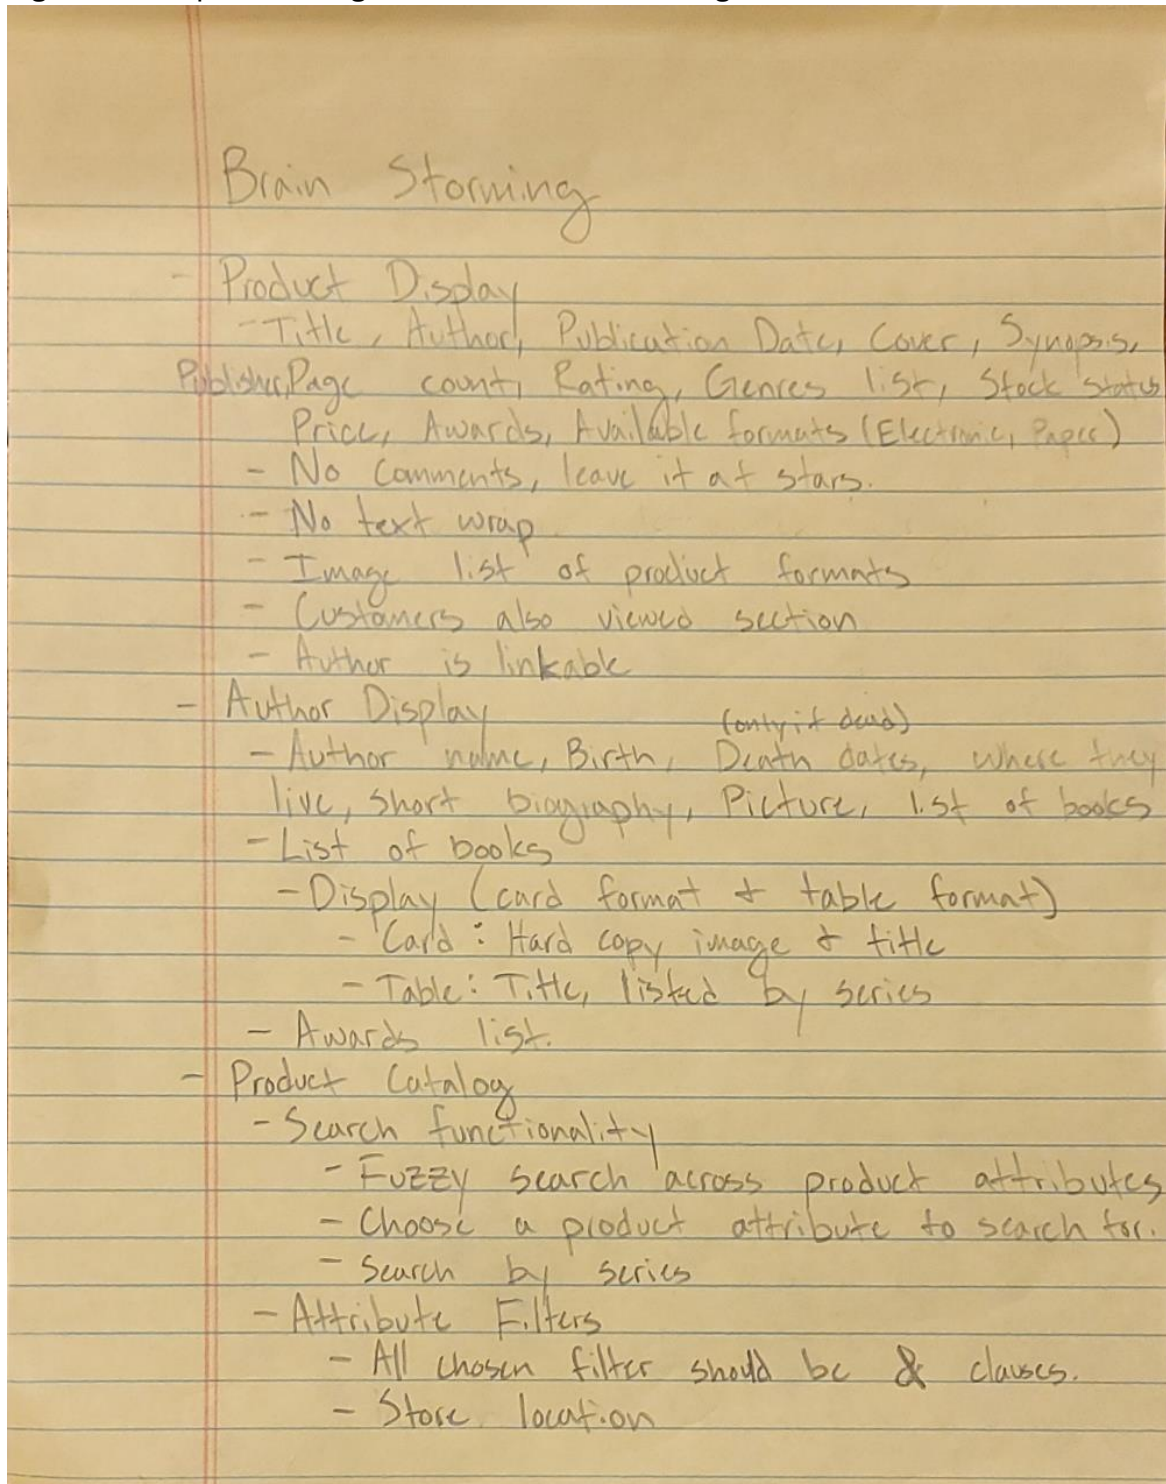 Brain Storming
- Product Display
- Title, Author, Publication Date, Cover, Synopsis,
Publisher, Page count, Rating, Genres list, Stock status
Price, Awards, Available formats (Electronic, Paper)
- No Comments, leave it at stars.
- No text wrap
- Image list of product formats
- Customers also viewed section
- Author is linkable
- Author Display
(only if dead)
- Author name, Birth, Death dates, where they
live, short biography, Picture, list of books
- List of books
- Display (card format & table format)
- Card: Hard copy image & title
- Table: Title, listed by series
- Awards list.
- Product Catalog
- Search functionality
- Fuzzy search across product attributes
- Choose a product attribute to search for.
- Search by series
- Attribute Filters
- All chosen filter should be & clauses.
- Store location